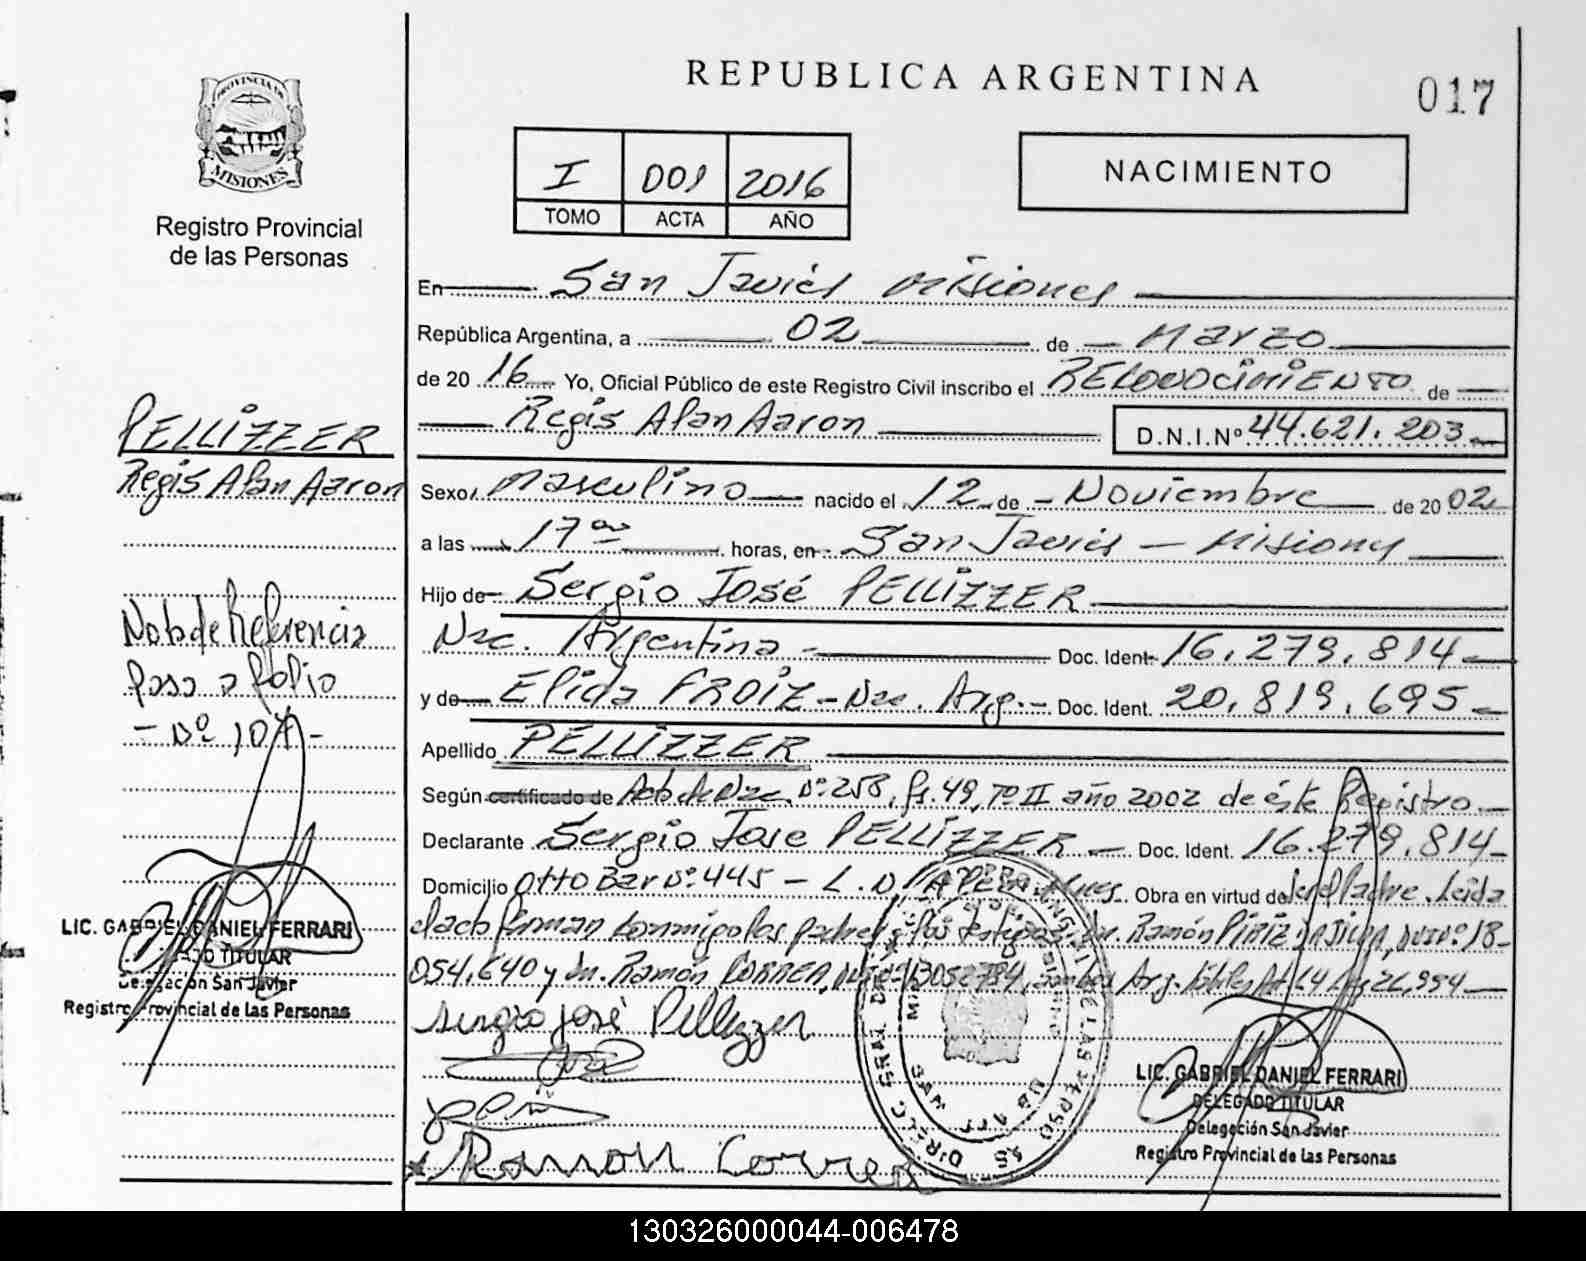 REPUBLICA ARGENTINA
017
PROVINCIA DE
MISIONES
Registro Provincial
de las Personas
I 001 2016
TOMO ACTA AÑO
NACIMIENTO
En San Javier Misiones
República Argentina, a 02 de Marzo
de 2016 Yo, Oficial Público de este Registro Civil inscribo el RECONOCIMIENTO de
Regis Alan Aaron D.N.I.Nº 44.621.203
PELLIZZER
Regis Alan Aaron
Sexo masculino nacido el 12 de Noviembre de 2002
a las 17 horas, en San Javier - Misiones
Hijo de Sergio José PELLIZZER
Nac. Argentina - Doc. Ident. 16.279.814
y de Elida FROIZ - Nac. Arg. - Doc. Ident. 20.819.695
Nota de Referencia
Pasa a folio
- Nº 107 -
Apellido PELLIZZER
Según certificado de Acta de Nac. Nº 258, fs. 49, Tº II año 2002 de éste Registro
Declarante Sergio Jose PELLIZZER - Doc. Ident. 16.279.814
Domicilio Otto Bar Nº 445 - L.N. Obra en virtud de ser el Padre. Leida
el acta firman conmigo los padres y los testigos Ramón 18.
054.640 y Ramón CORREA, Arg. 26.994
Sergio José Pellizzer
Ramon Correa
LIC. GABRIEL DANIEL FERRARI
DELEGADO TITULAR
Delegación San Javier
Registro Provincial de las Personas
LIC. GABRIEL DANIEL FERRARI
DELEGADO TITULAR
Delegación San Javier
Registro Provincial de las Personas
130326000044-006478